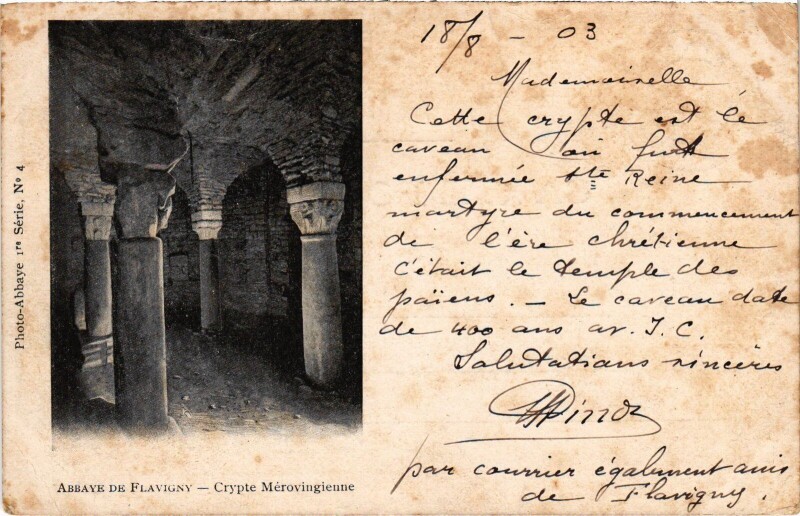 Photo-Abbaye 1re Série, No 4
ABBAYE DE FLAVIGNY — Crypte Mérovingienne
18/8 - 03
Mademoiselle
Cette crypte est le
caveau où fut
enfermée Ste Reine
martyre du commencement
de l'ère chrétienne
c'était le temple des
païens. — Le caveau date
de 400 ans av. J. C.
Salutations sincères
par courrier également
de Flavigny.